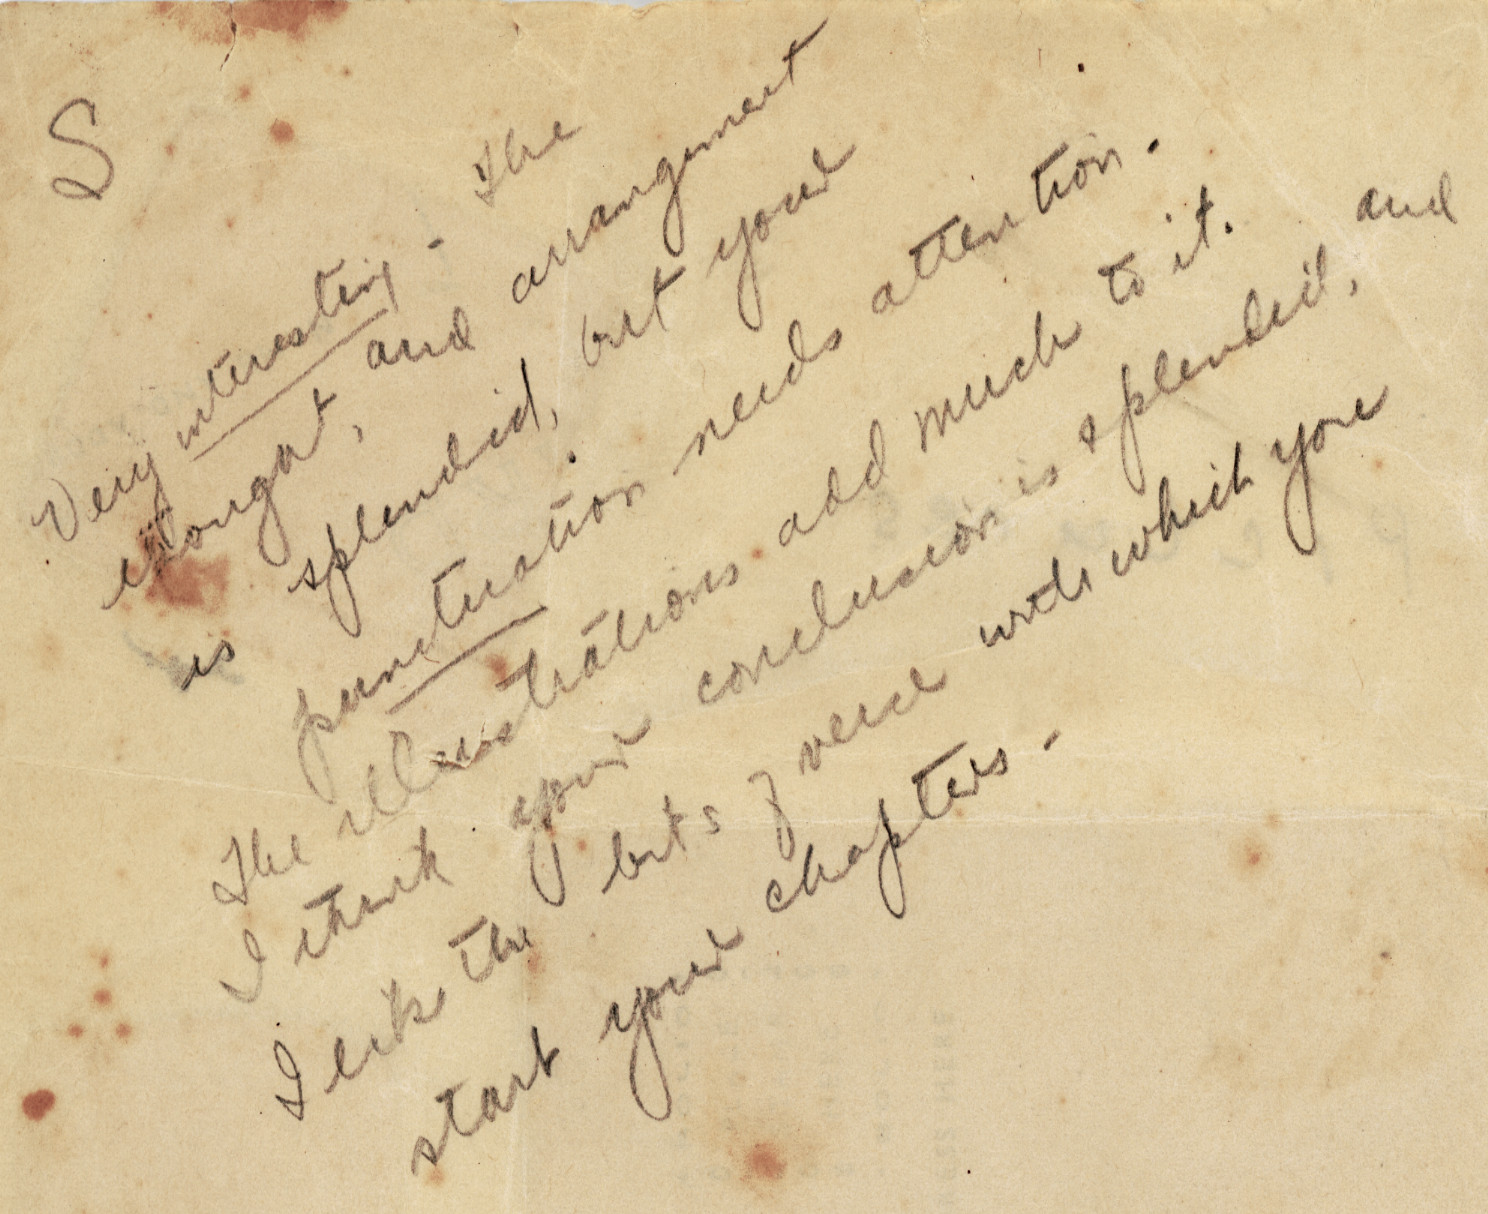 S
Very interesting - The
thought, and arrangement
is splendid, but your
punctuation needs attention.
The illustrations add much to it.
I think your conclusion is splendid, and
I like the bits of verse with which you
start your chapters.